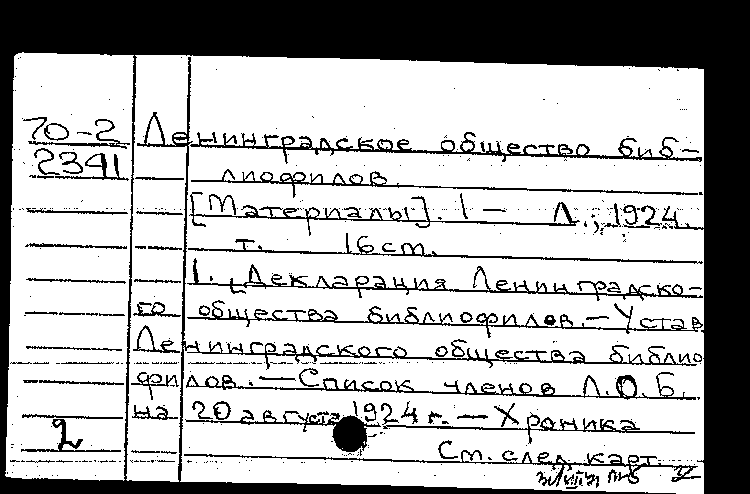 70-2 Ленинградское общество биб-
2341 лиофилов.
[Материалы]. 1 — Л., 1924.
т. 16 cm.
1. [Декларация Ленинградско-
го общества библиофилов. — Устав
Ленинградского общества библио
филов. — Список членов Л.О.Б.
на 20 августа 1924 г. — Хроника
2 См. след. карт.